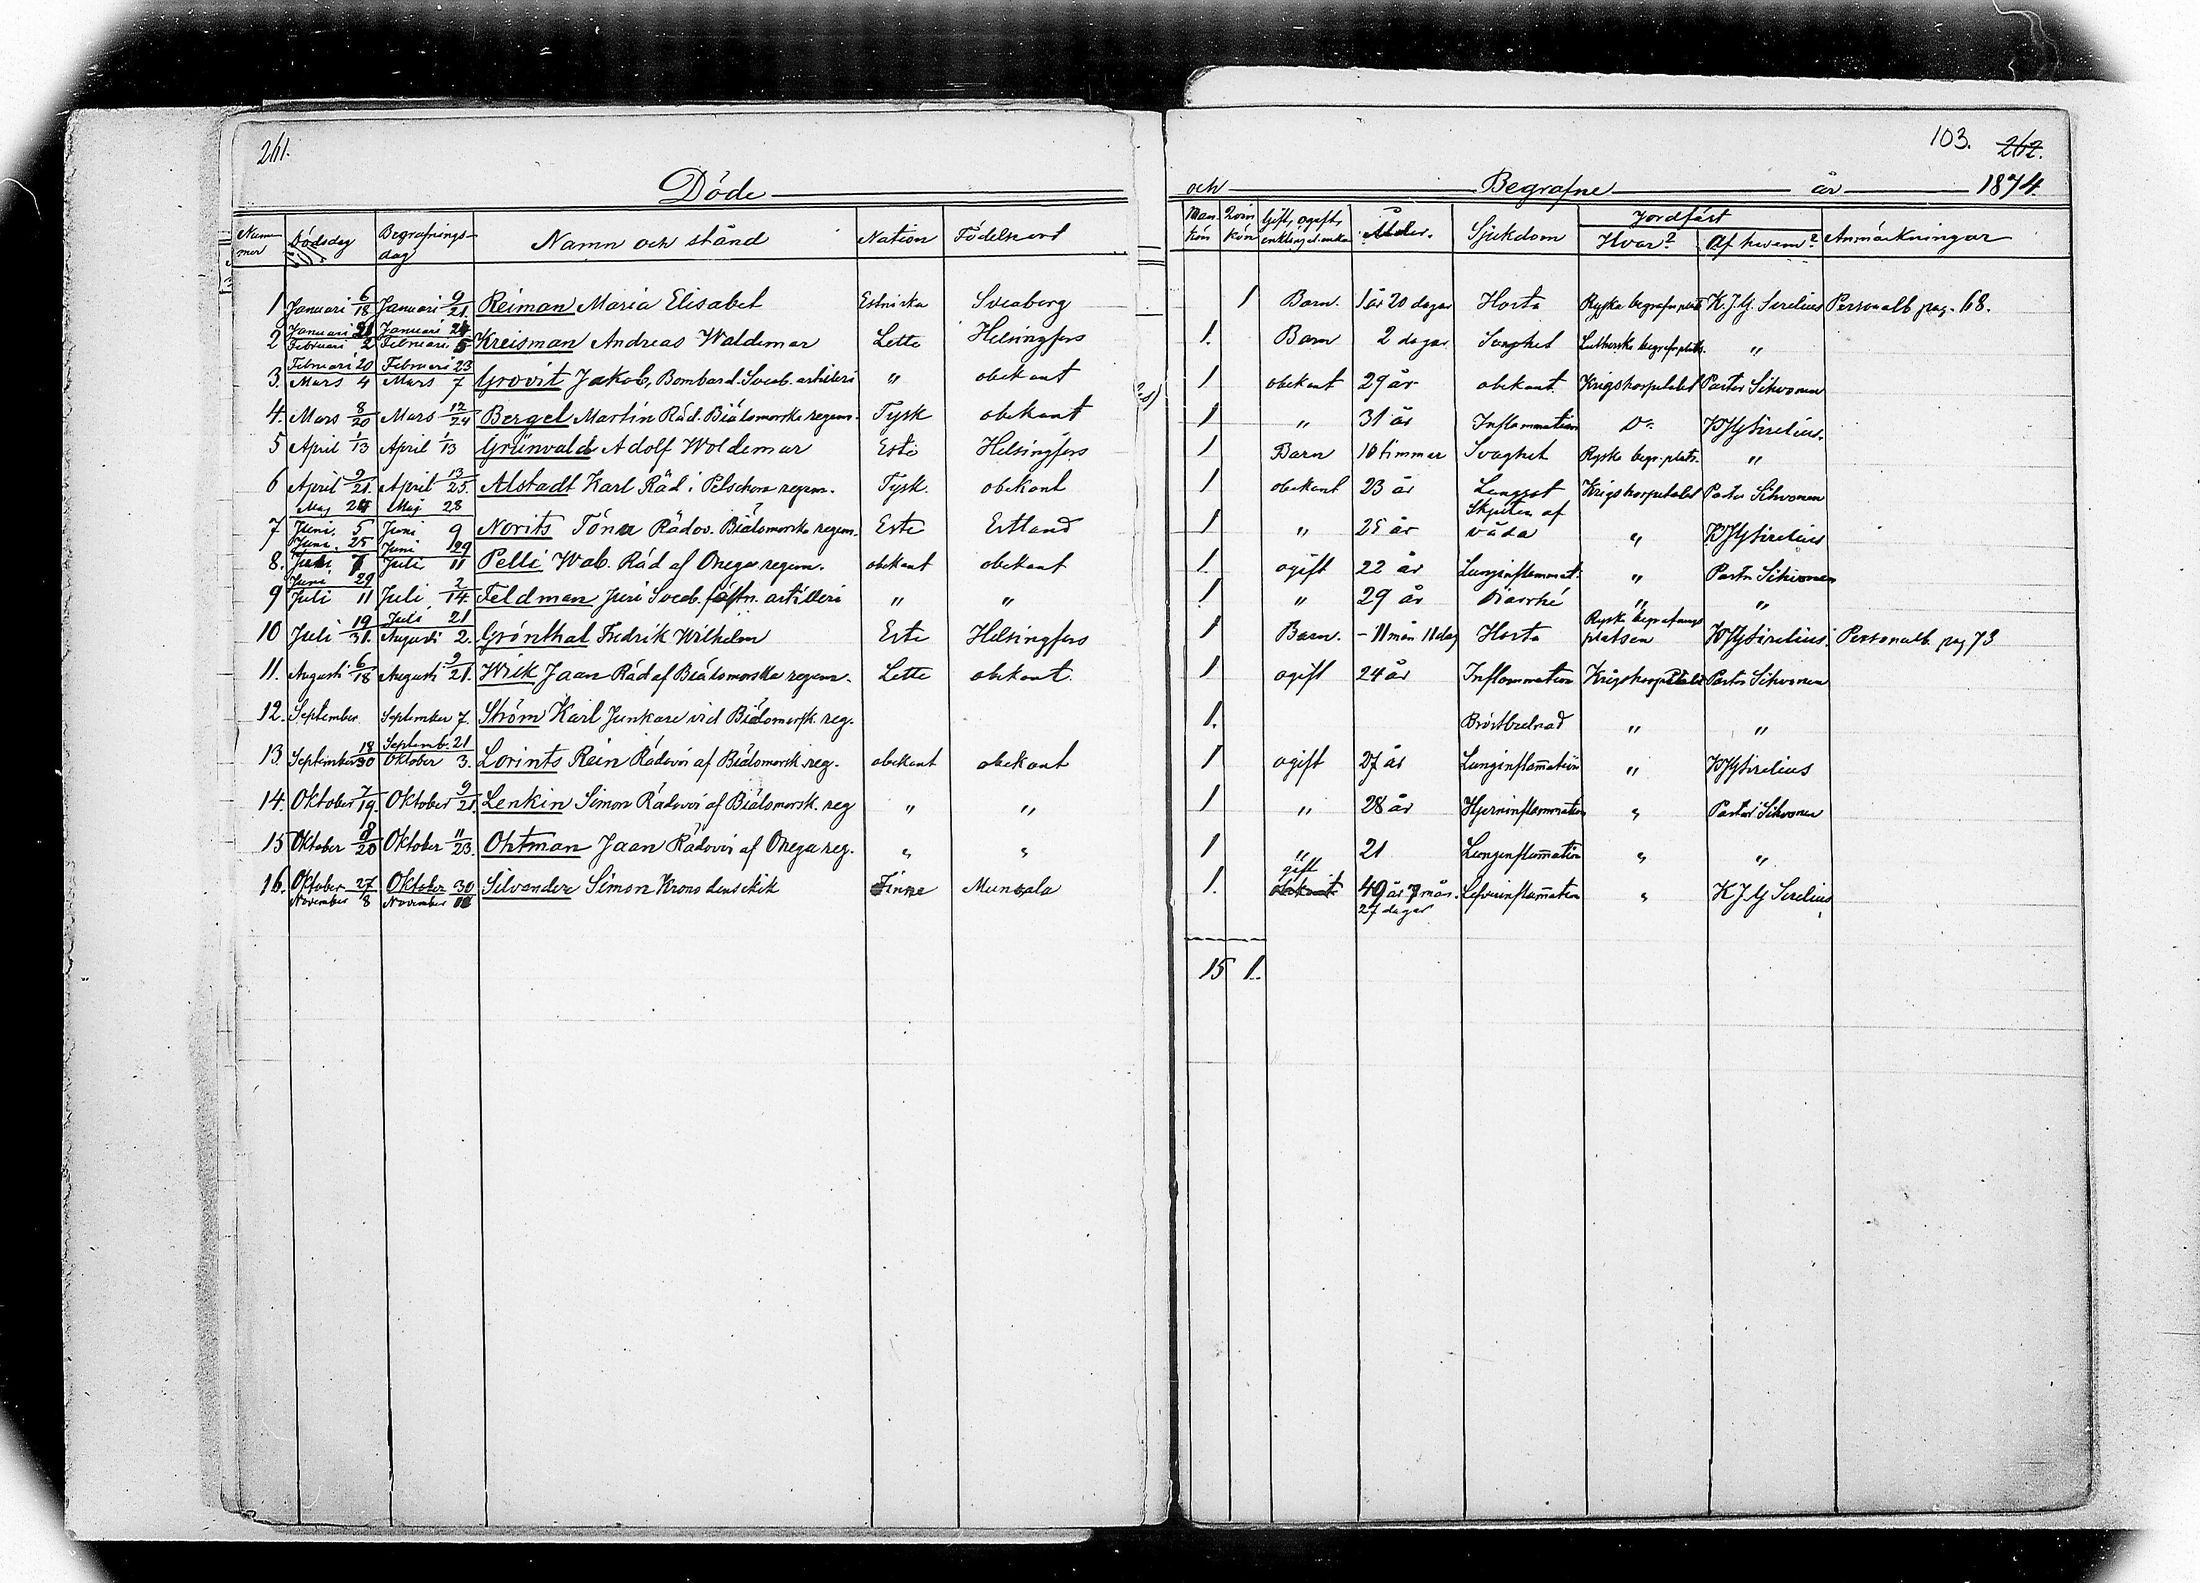 261.
Döde
Nummer Dödsdag Begrafningsdag Namn och stånd Nation Födelseort
1 Januari 6/18 Januari 9/21. Reiman Maria Elisabet Estniska Sveaborg
2 Januari 21 Februari 2 Januari 24 Februari 5 Kreisman Andreas Waldemar Lette Helsingfors
3. Februari 20 Mars 4 Februari 23 Mars 7 Grovit Jakob, Bombard. Sveab. artilleri " obekant
4. Mars 8/20 Mars 12/24 Bergel Martin Råd. Biälomorska regem. Tysk obekant
5 April 1/13 April 1/13 Grünvald Adolf Woldemar Este Helsingfors
6 April 9/21. April 13/25. Alstadt Karl Råd. i Petschora regem. Tysk. obekant
7 Maj 24 Juni. 5 Maj 28 Juni 9 Norits Tóna Rådov. Biälomorska regem. Este Estland
8. Juni. 25 Juli 7 Juni 29 Juli 11 Pelli Wab. Råd af Onega regem. obekant obekant
9 Juni 29 Juli 11 Juli 2/14. Feldman Juri Sveab. fästn. artilleri " "
10 Juli 19/31. Juli 21 Augusti 2. Grönthal Fredrik Wilhelm Este Helsingfors
11. Augusti 6/18 Augusti 9/21. Wik Jaan Råd af Biälomorska regem. Lette obekant.
12. September September 7. Ström Karl Junkare vid Biälomorsk. reg.
13. September 18/30 Septemb. 21 Oktober 3. Lorints Rein Rådovoi af Biälomorsk. reg. obekant obekant
14. Oktober 7/19. Oktober 9/21. Lenkin Simon Rådovoi af Biälomorsk. reg " "
15 Oktober 8/20 Oktober 11/23. Ohtman Jaan Rådovoi af Onega reg. " "
16. Oktober 27 November 8 Oktober 30 November 11 Silvander Simon Krono densckik Finne Munsala
103. 262.
och Begrafne år 1874.
Mankön Qvinkön Gift, ogift, enkling el. enka Ålder. Sjukdom Jordfäst Hvar? Af hvem? Anmärkningar
1 Barn. 1 år 20 dagar Hosta Ryska begrafn plats K. J. G. Sirelius Personalb pag. 68.
1. Barn 2 dagar Svaghet Lutherska begrafn plats. "
1 obekant 29 år obekant Krigshospitalet Pastor Sihvonen
1 " 31 år Inflammation Do KJG Sirelius.
1 Barn 10 timmar Svaghet Ryska begr. plats. "
1 obekant 23 år Lungsot Krigshospitalet Pastor Sihvonen
1 " 25 år Skjuten af våda " KJG Sirelius
1. ogift 22 år Lunginflammat. " Pastor Sihvonen
1 " 29 år Diarrhé " "
1 Barn. - 11 mån 11 dag Hosta Ryska begrafnings platsen KJG Sirelius. Personalb. pag 73
1 ogift 24 år Inflammation Krigshospitalet Pastor Sihvonen
1. Bröstbrånad " "
1 ogift 27 år Lunginflamation " KJG Sirelius
1 " 28 år Hjerninflammation " Pastor Sihvonen
1 " 21 Lunginflamation " "
1. gift obekant 49 år 7 mån. 27 dagar Lefverinflamation " K J G Sirelius
15 1.